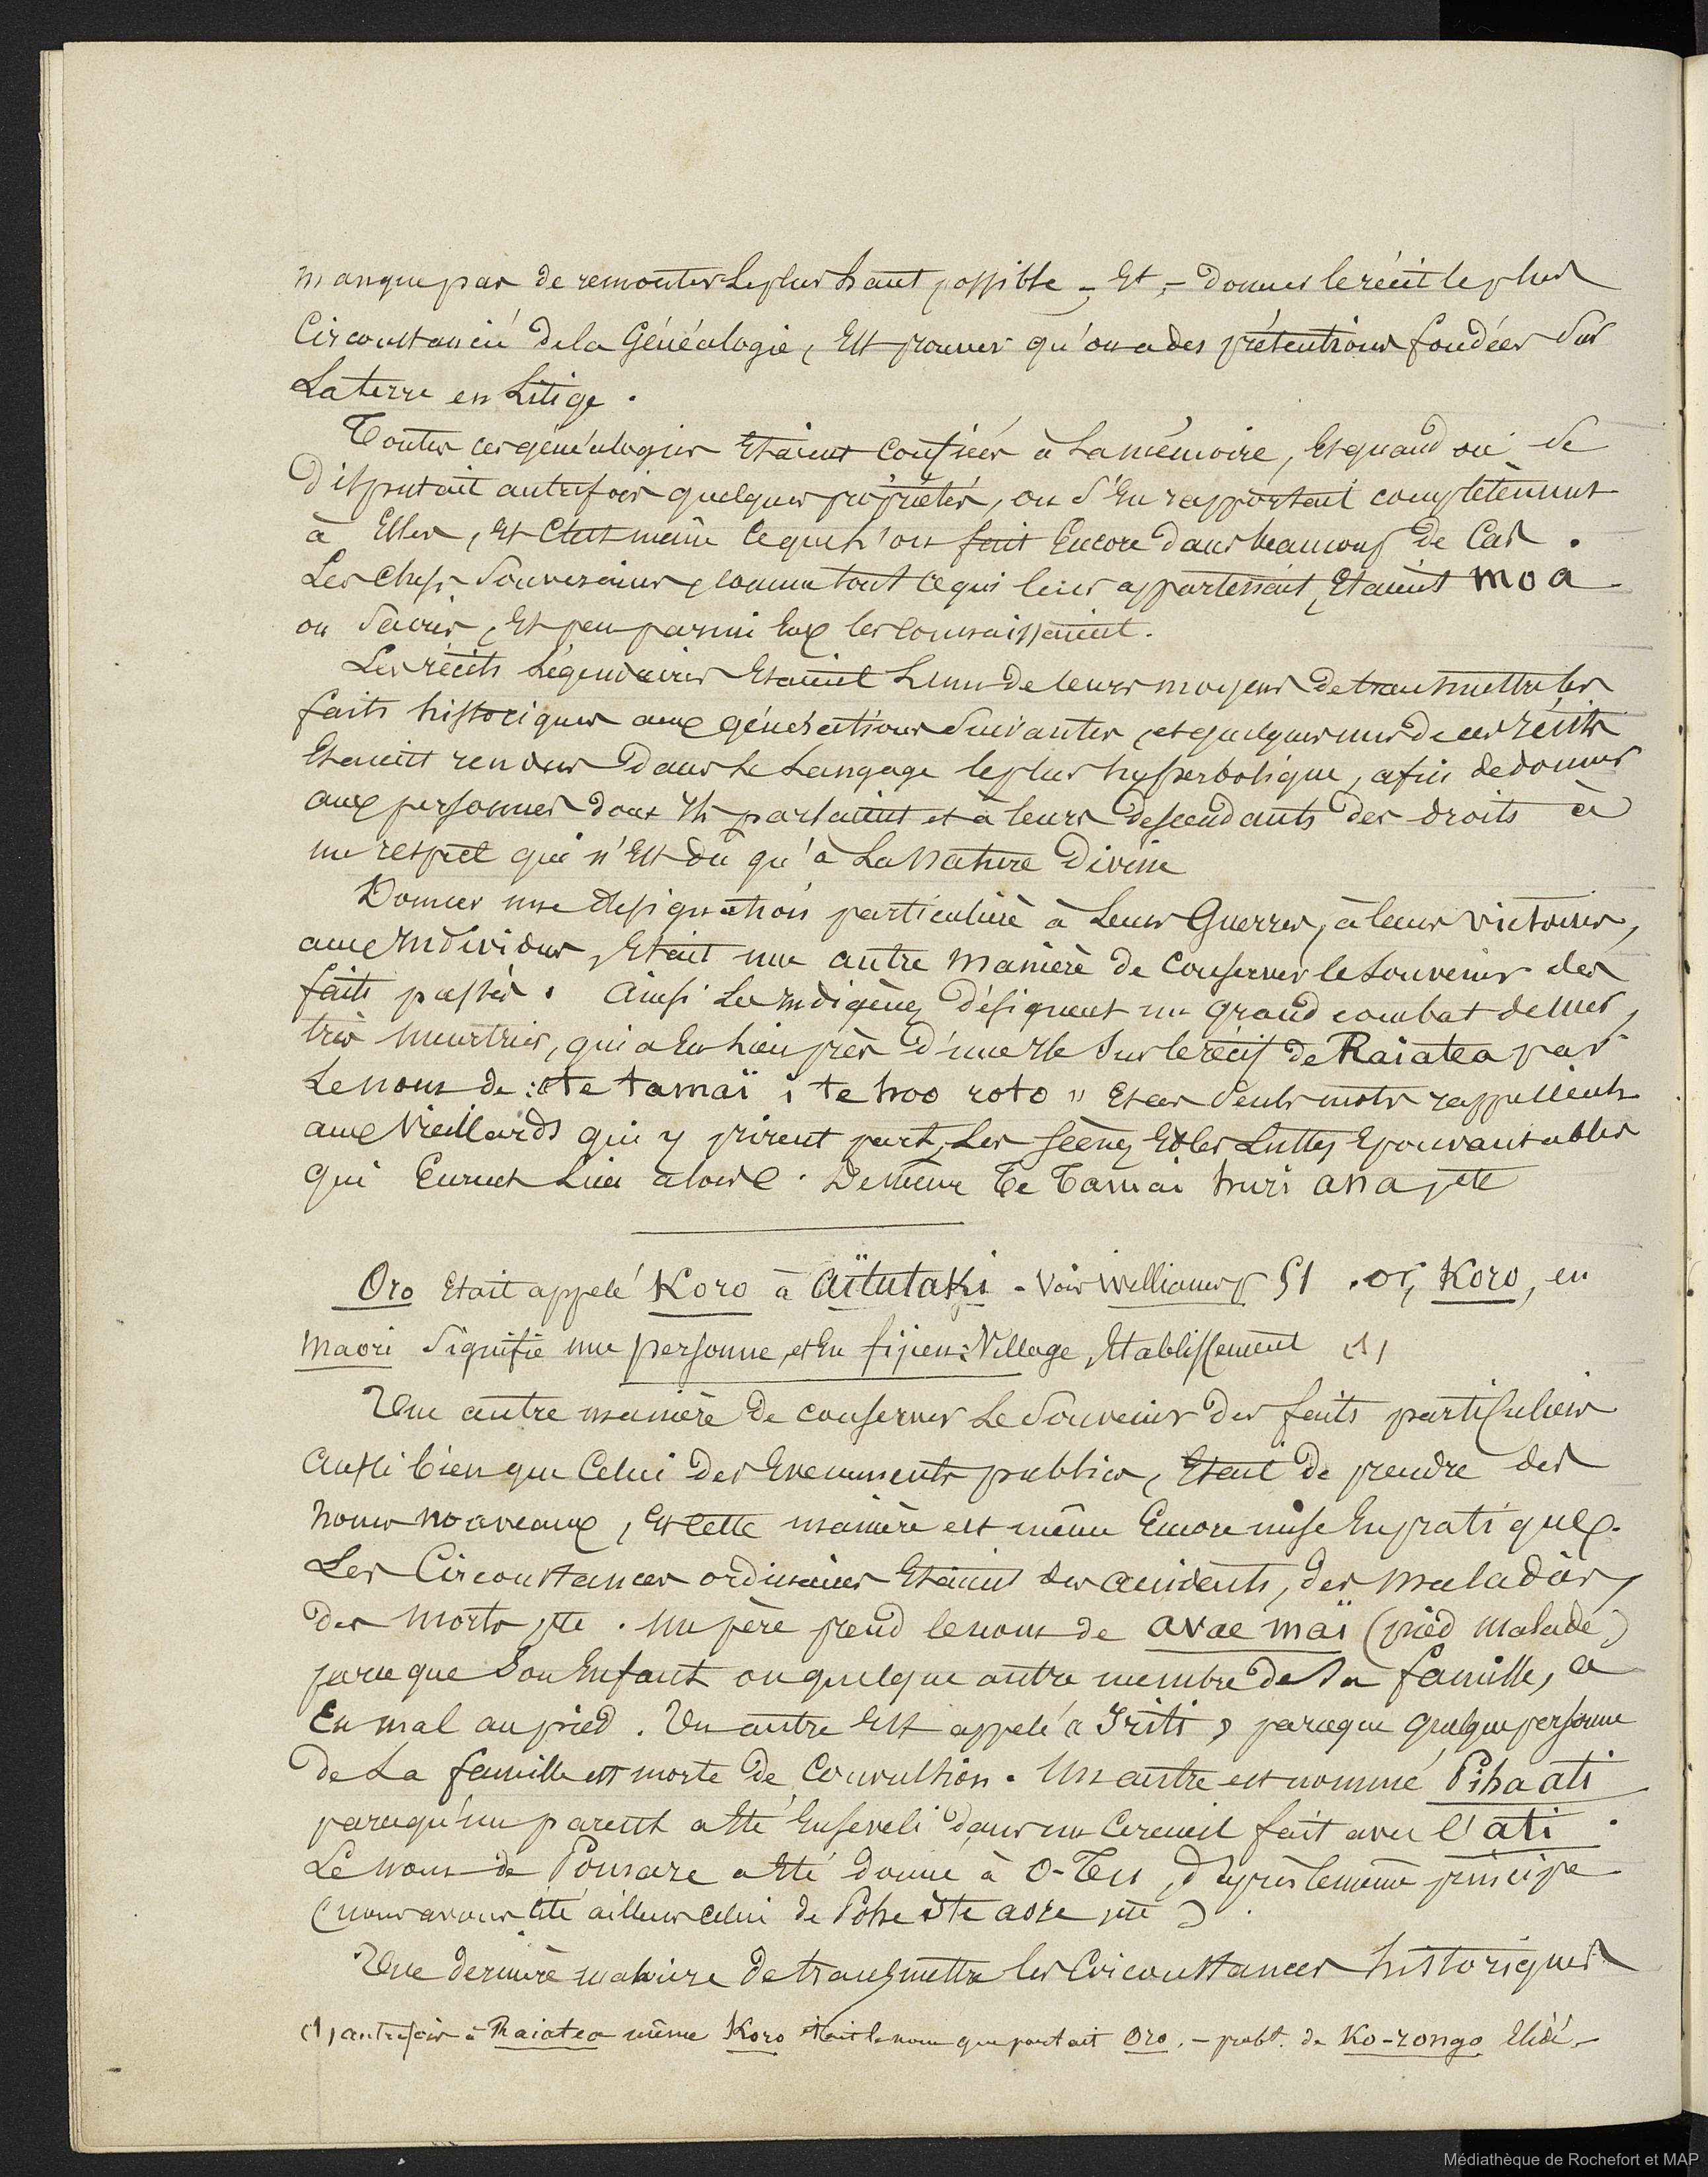 manque pas de remonter le plus haut possible, _ Et, - donner le récit le plus
Circonstancié de la Généalogie, Est prouver qu'on a des prétentions fondées sur
La terre en Litige.
Toutes ces généalogies Etaient confiées à La mémoire, Et quand on se
disputait autrefois quelques propriétés, on s'En rapportait complètement
à Elles, Et C'Est même ce que l'on fait Encore dans beaucoup de Cas.
Les Chefs Souverains, comme tout ce qui leur appartenait, Etaient moa
ou Sacrés, Et peu parmi Eux les Connaissaient.
Les récits Légendaires Etaient L'un de leurs moyens de transmettre les
faits historiques aux générations Suivantes, et quelques uns de ces récits
Etaient rendus Dans Le Langage le plus hyperbolique, afin de donner
aux personnes dont Ils parlaient et à leurs descendants des droits à
un respect qui n'Est dû qu'à La Nature Divine
Donner une désignation particulière à Leurs Guerres, à leurs victoires,
aux Individus, Etait une autre manière de Conserver le Souvenir des
faits passés. Ainsi Les Indigènes désignent un grand combat de mer,
très meurtrier, qui a Eu lieu près d'une Ile Sur le récif de Raiatea par
Le nom de : « te tamaï i te hoo roto » Et ces Seuls mots rappellent
aux Vieillards qui y prirent part, Les Scènes Et les Luttes Epouvantables
qui Eurent Lieu alors. De même Te Tamai huri ana, etc
Oro Etait appelé Koro à Aïtutaki - Voir Williams p 51 . or, Koro, en
maori Signifie une personne, et En fijien : Village, Etablissement (1)
Une autre manière de conserver Le Souvenir des faits particuliers
Aussi bien que Celui des Evenements publics, Etait de prendre des
noms nouveaux, Et Cette manière est même Encore mise En pratique.
Les Circonstances ordinaires Etaient des accidents, des maladies,
Des Morts, etc. Un père prend le nom de avae maï (pied malade)
parce que Son Enfant ou quelque autre membre de Sa famille, a
Eu mal au pied. Un autre Est appelé « Iriti », parce que quelque personne
De La famille est morte de Convulsion. Un autre est nommé Piha ati
parce qu'un parent a Eté Enseveli dans un Cercueil fait avec l'ati.
Le nom de Pomare a Eté donné à O-Teu, d'après le même principe
(nous avons cité ailleurs Celui de Pohe i te aore, etc).
Une dernière manière de transmettre les Circonstances historiques
(1) autrefois à Raiatea même Koro était le nom que portait Oro. - probt. de Ko-rongo Elidé. -
Médiathèque de Rochefort et MAP